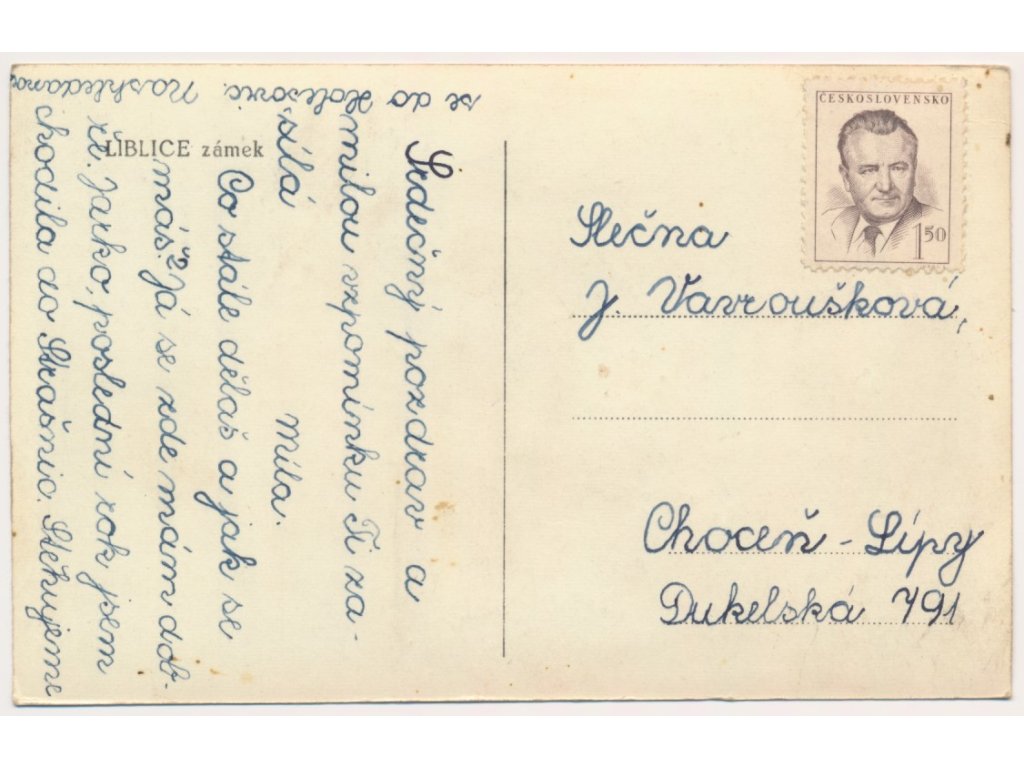 Srdečný pozdrav a
milou vzpomínku Ti za-
sílá
Míla.
Co stále děláš a jak se
máš? Já se zde mám dob-
ře. Jarko, poslední rok jsem
chodila do Strašnic. Stěhujeme
se do Holešovic. Nashledanou
LIBLICE zámek
ČESKOSLOVENSKO
1 50
Slečna
J. Vavroušková,
Choceň - Lípy
Dukelská 791